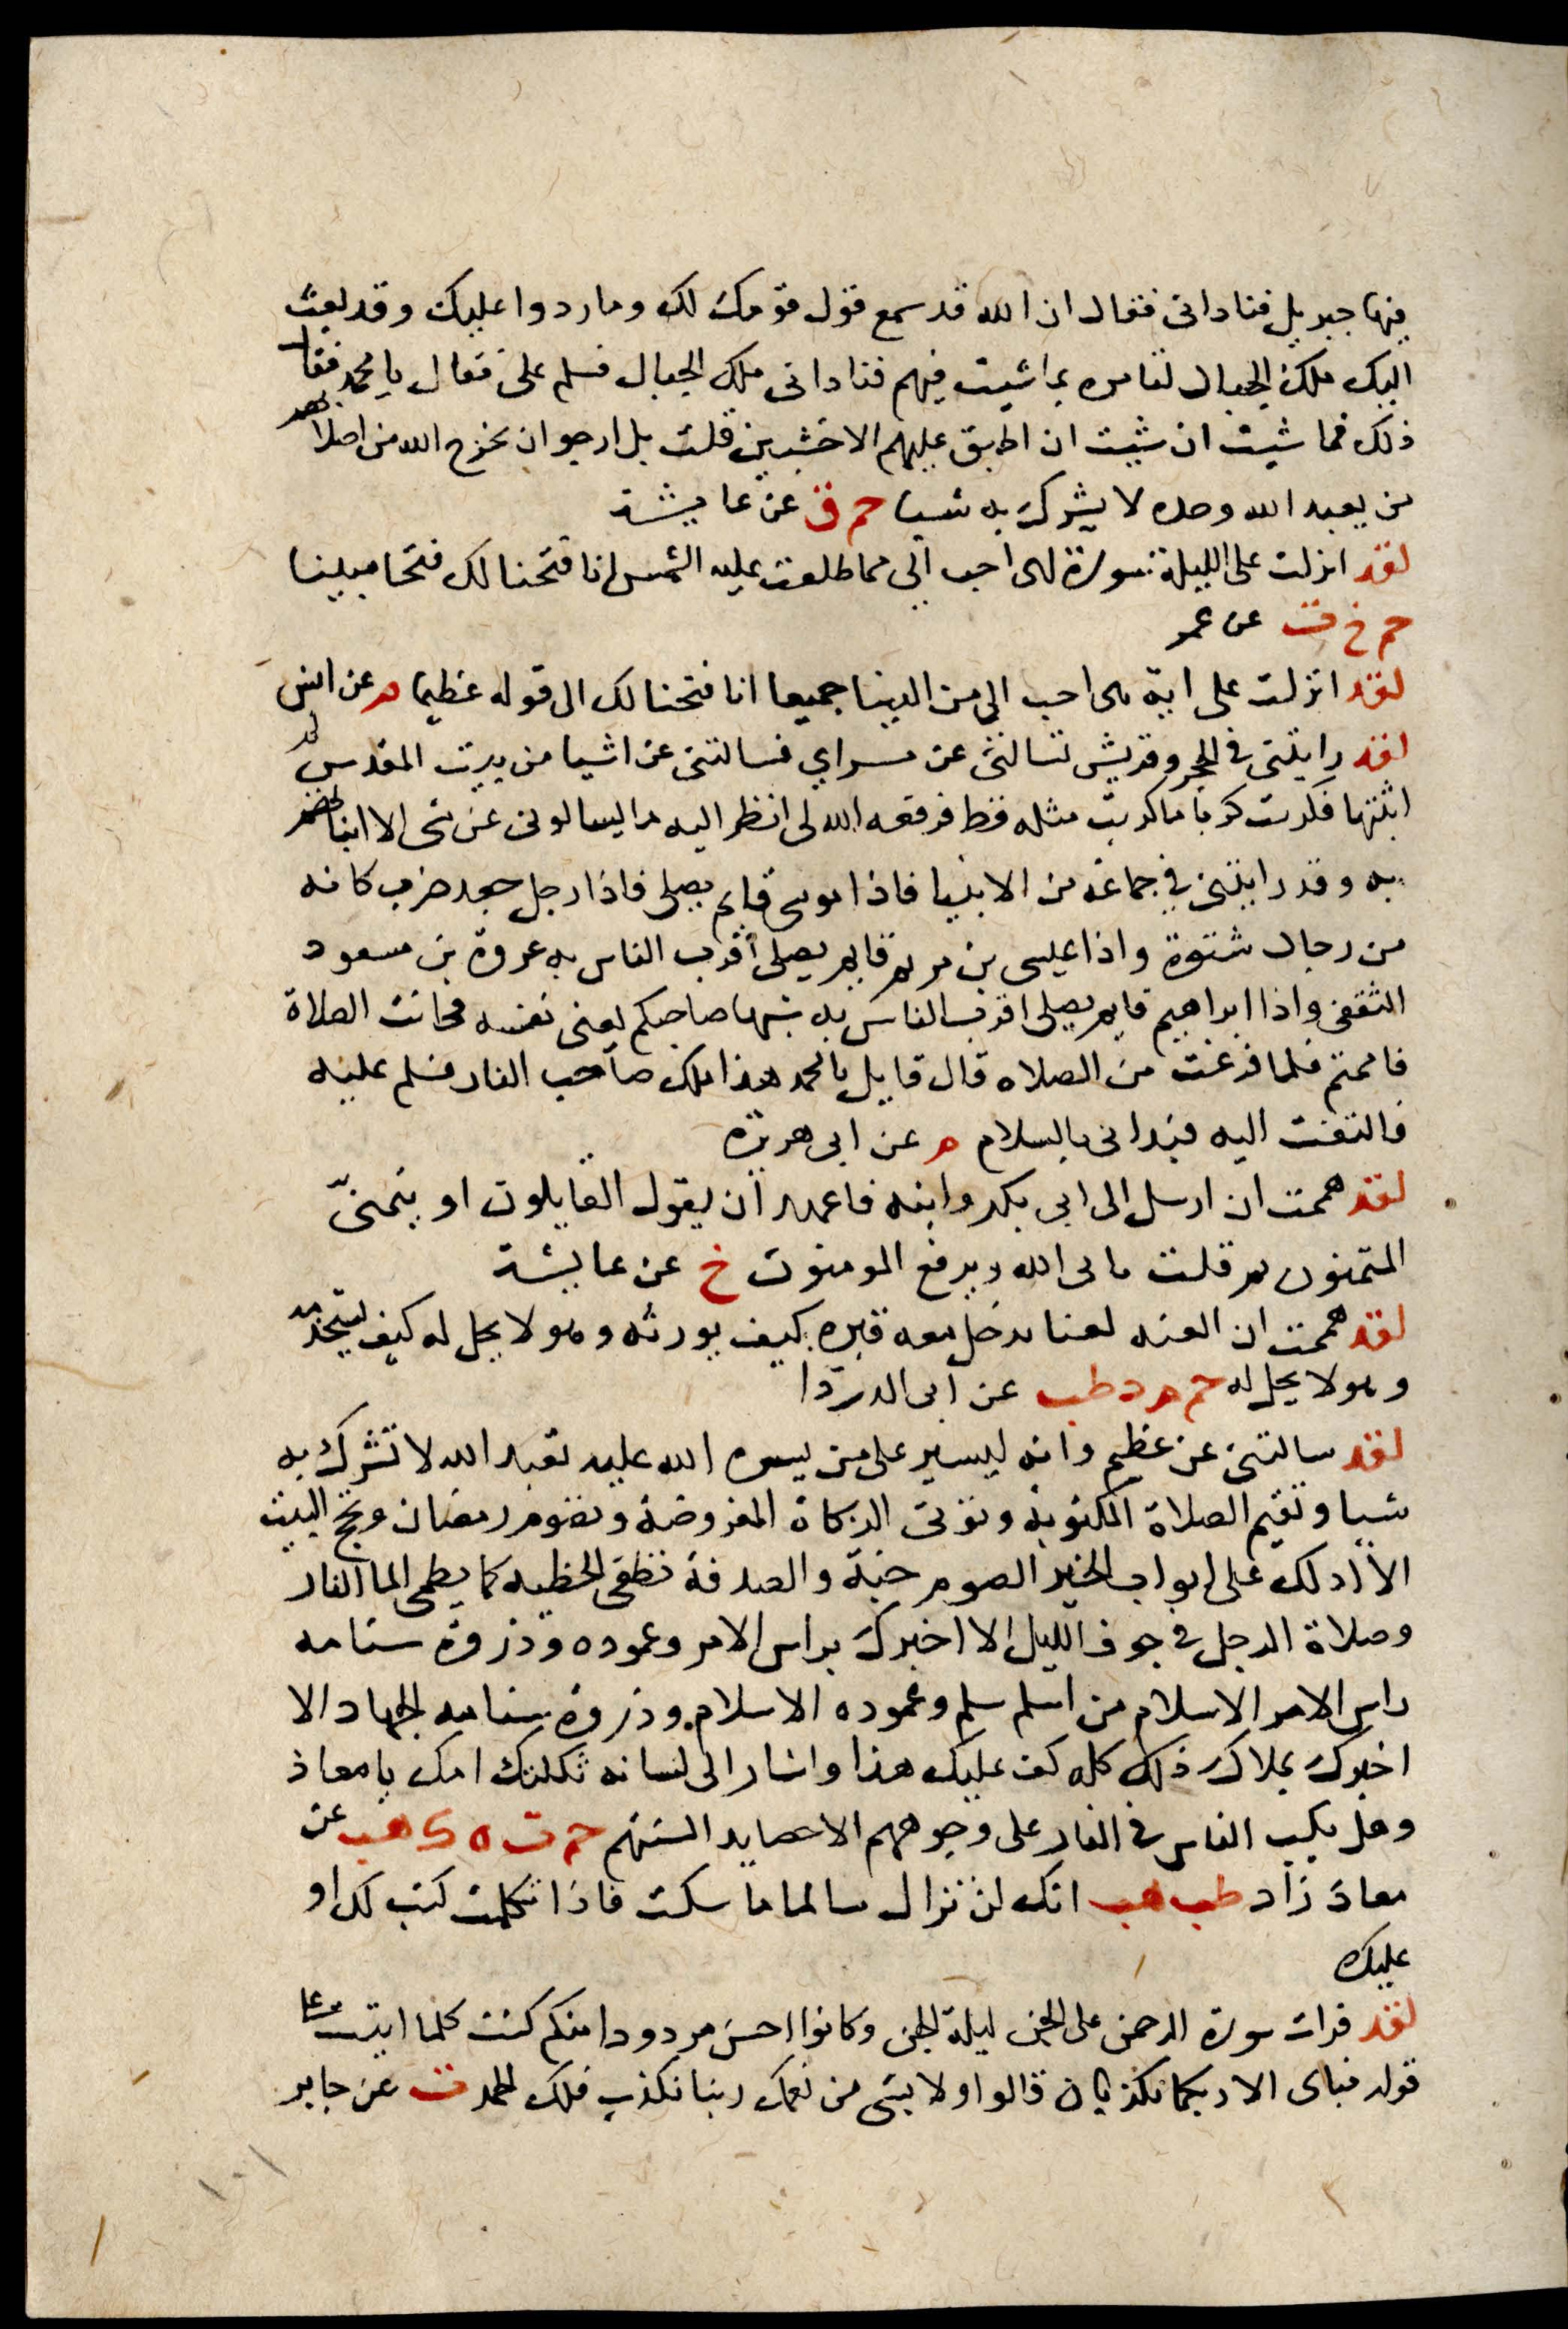 فيها جبريل فناداني فقال ان الله قد سمع قول قومك لك وما ردوا عليك وقد بعث
اليك ملك الجبال لتامره بما شيت فيهم فناداني ملك الجبال فسلم على فقال يا محمد فقال
ذلك فما شيت ان شيت ان اطبق عليهم الاخشبين قلت بل ارجو ان يخرج الله من اصلابهم
من يعبد الله وحده لا يشرك به شيا حم ق عن عايشة
لقد انزلت على الليلة سورة لهى احب الي مما طلعت عليه الشمس انا فتحنا لك فتحا مبينا
حم خ ت عن عمر
لقد انزلت على اية هى احب الي من الدينا جميعا انا فتحنا لك الى قوله عظيما م عن انس
لقد رايتنى في الحجر وقريش تسالنى عن مسراي فسالتنى عن اشيا من بيت المقدس لم
اثبتها فكربت كربا ما كربت مثله قط فرفعه الله لى انظر اليه ما يسالونى عن شى الا انباتهم
به وقد رايتنى في جماعة من الانبيا فاذا موسى قايم يصلى فاذا رجل جعد ضرب كانه
من رجال شنوة واذا عيسى بن مريم قايم يصلى اقرب الناس به عروة بن مسعود
الثقفى واذا ابراهيم قايم يصلى اقرب الناس به شبها صاحبكم يعنى نفسه فحانت الصلاة
فاممتهم فلما فرغت من الصلاه قال قايل يا محمد هذا ملك صاحب النار فسلم عليه
فالتفت اليه فبدانى بالسلام م عن ابى هريره
لقد هممت ان ارسل الى ابى بكر وابنه فاعهد ان يقول القايلون او يتمنّى
المتمنون ثم قلت يابى الله ويدفع المومنون خ عن عايشة
لقد هممت ان العنه لعنا يدخل معه قبره كيف يورثه وهو لا يحل له كيف يستخدمه
وهو لا يحل له حم م د طب عن ابى الدردا
لقد سالتنى عن عظيم وانه ليسير على من يسره الله عليه تعبد الله لا تشرك به
شيا وتقيم الصلاة المكتوبة وتوتى الزكاة المفروضة وتصوم رمضان وتحج البيت
الا ادلك على ابواب الخير الصوم جنة والصدقة تطفى الخطيه كما يطفى الما النار
وصلاة الرجل في جوف الليل الا اخبرك براس الامر وعموده وذروة سنامه
راس الامر الاسلام من اسلم سلم وعموده الاسلام وذروة سنامه الجهاد الا
اخبرك بملاك ذلك كله كف عليك هذا واشار الى لسانه ثكلتك امك يا معاذ
وهل يكب الناس في النار على وجوههم الا حصايد السنتهم حم ت ه ك هب عن
معاذ زاد طب هب انك لن تزال سالما ما سكت فاذا تكلمت كتب لك او
عليك
لقد قرات سورة الرحمن على الجن ليلة الجن وكانوا احسن مردودا منكم كنت كلما اتيت على
قوله فباى الا ربكما تكذبان قالوا ولا بشى من نعمك ربنا نكذب فلك الحمد ت عن جابر
١٠١